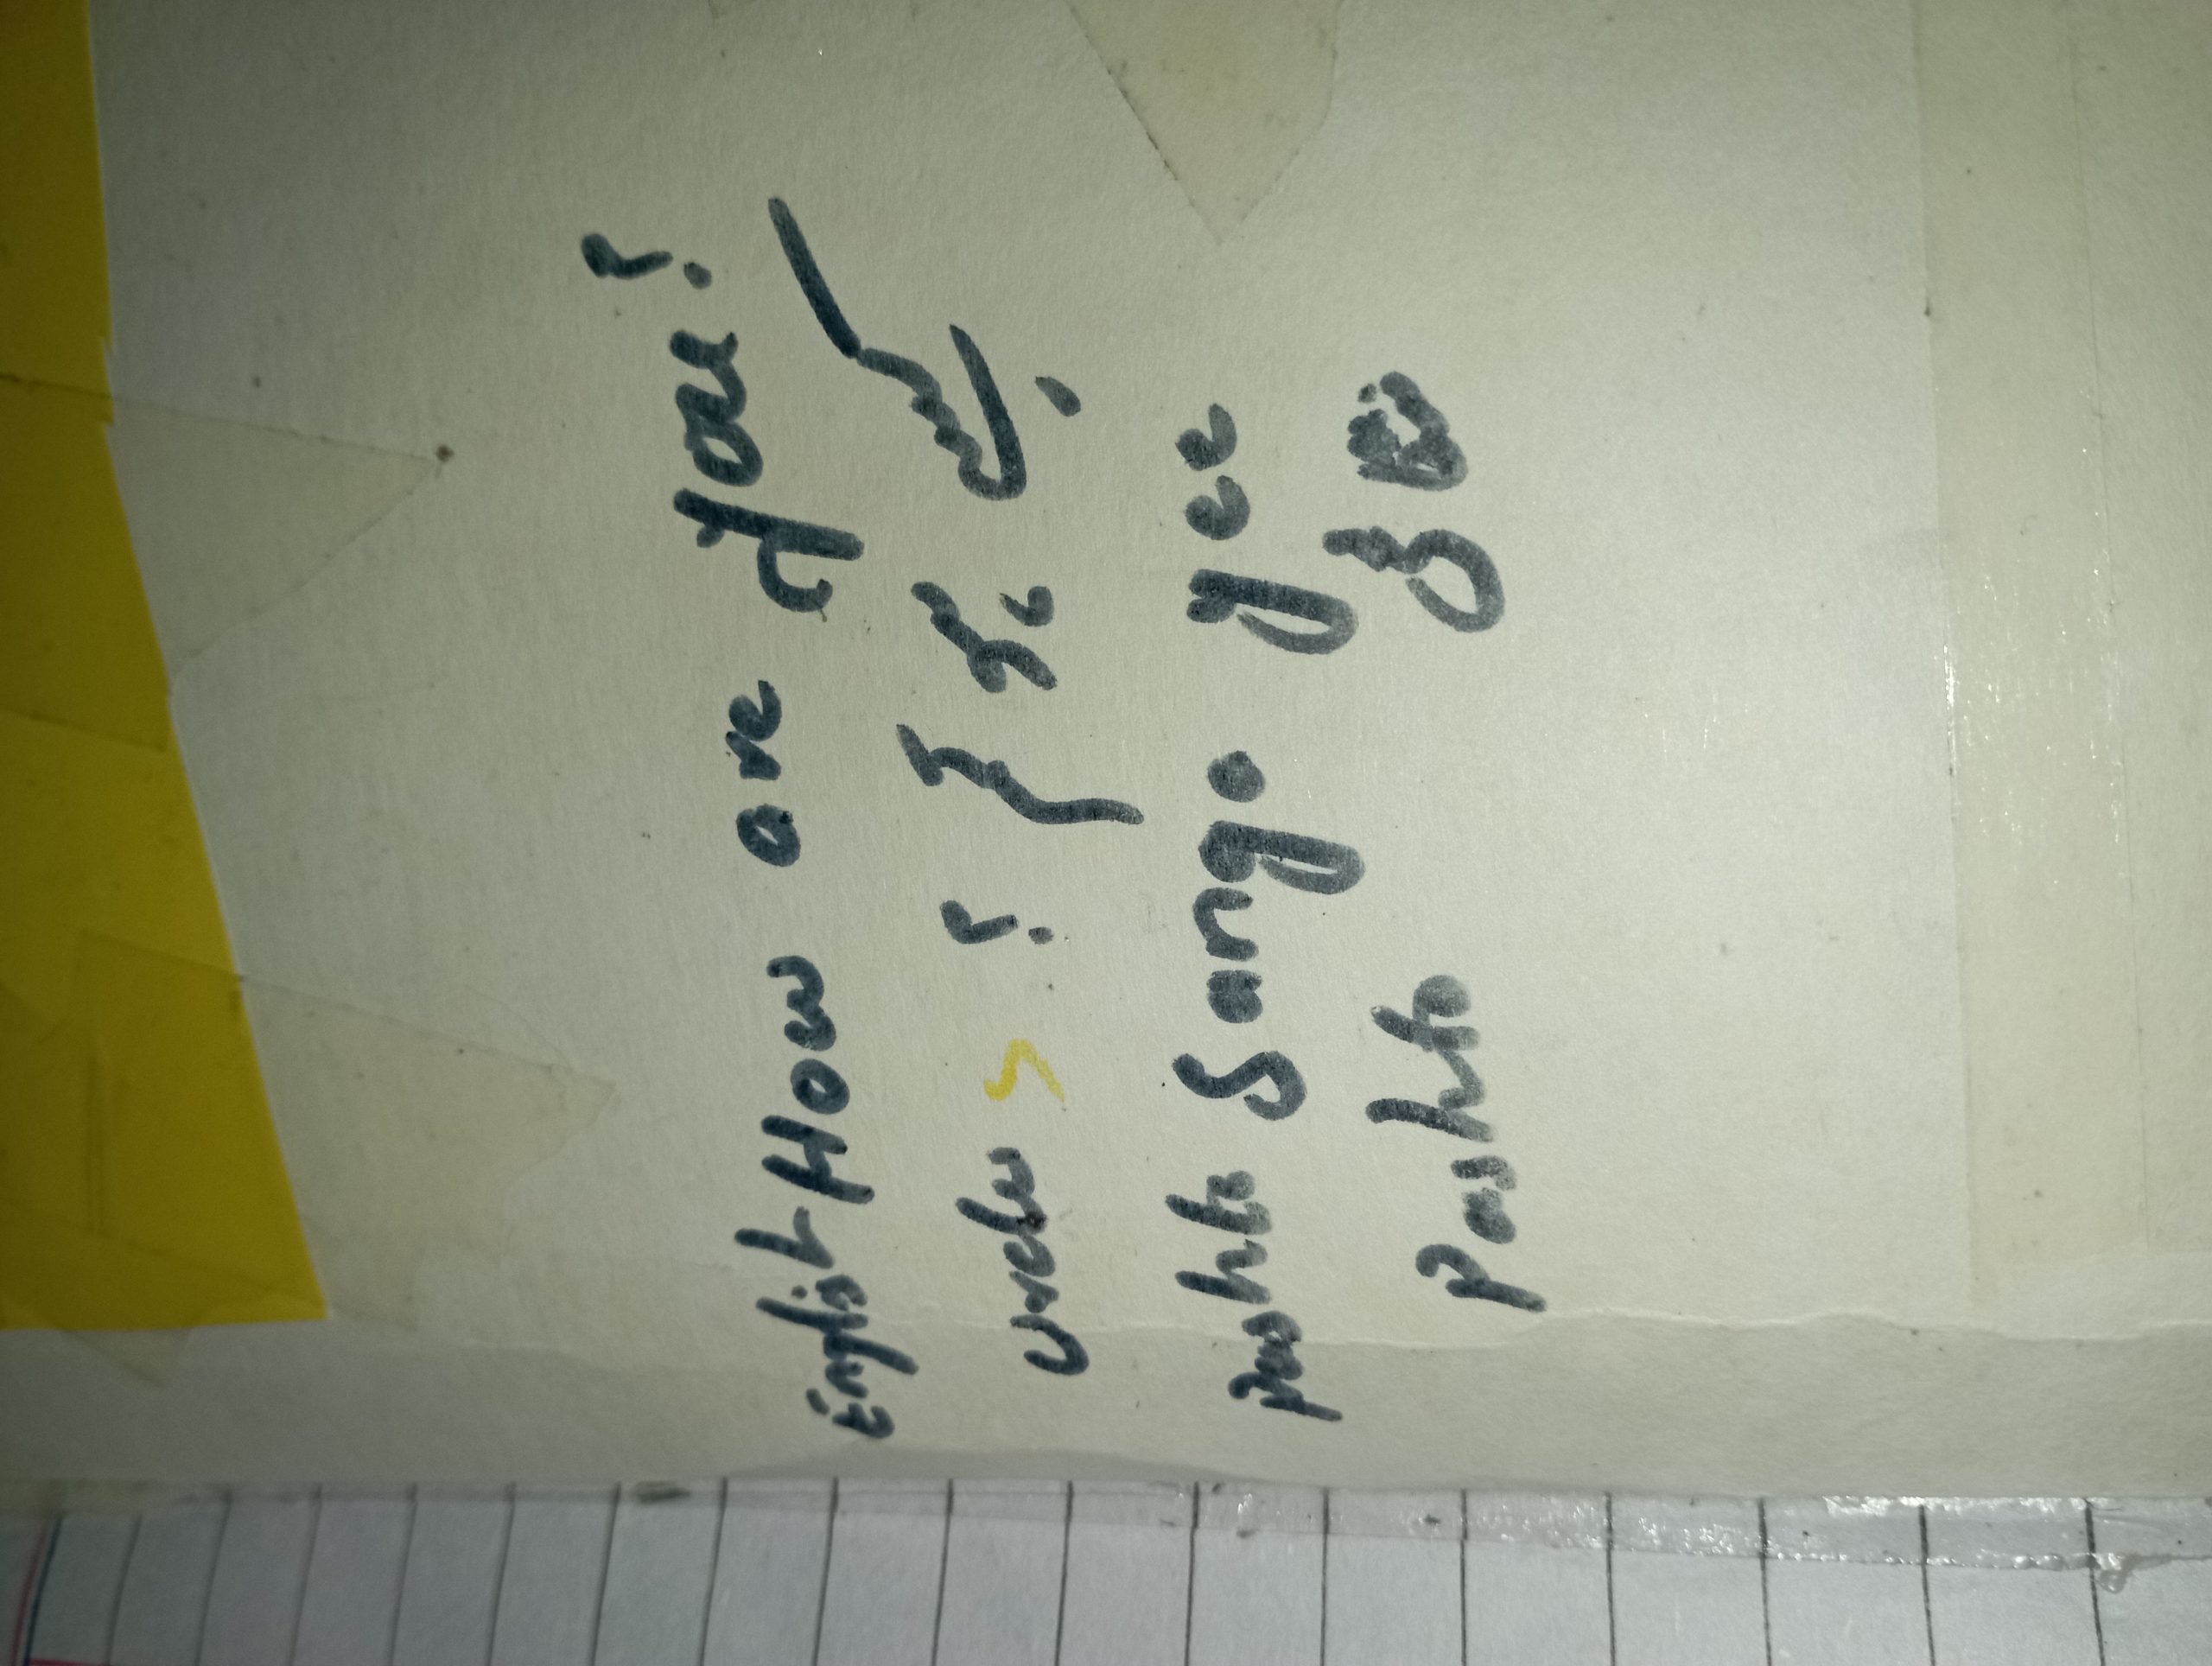 English How are you?
urdu آپ کیسے ہیں؟
pashto Sanga yee
Pashto